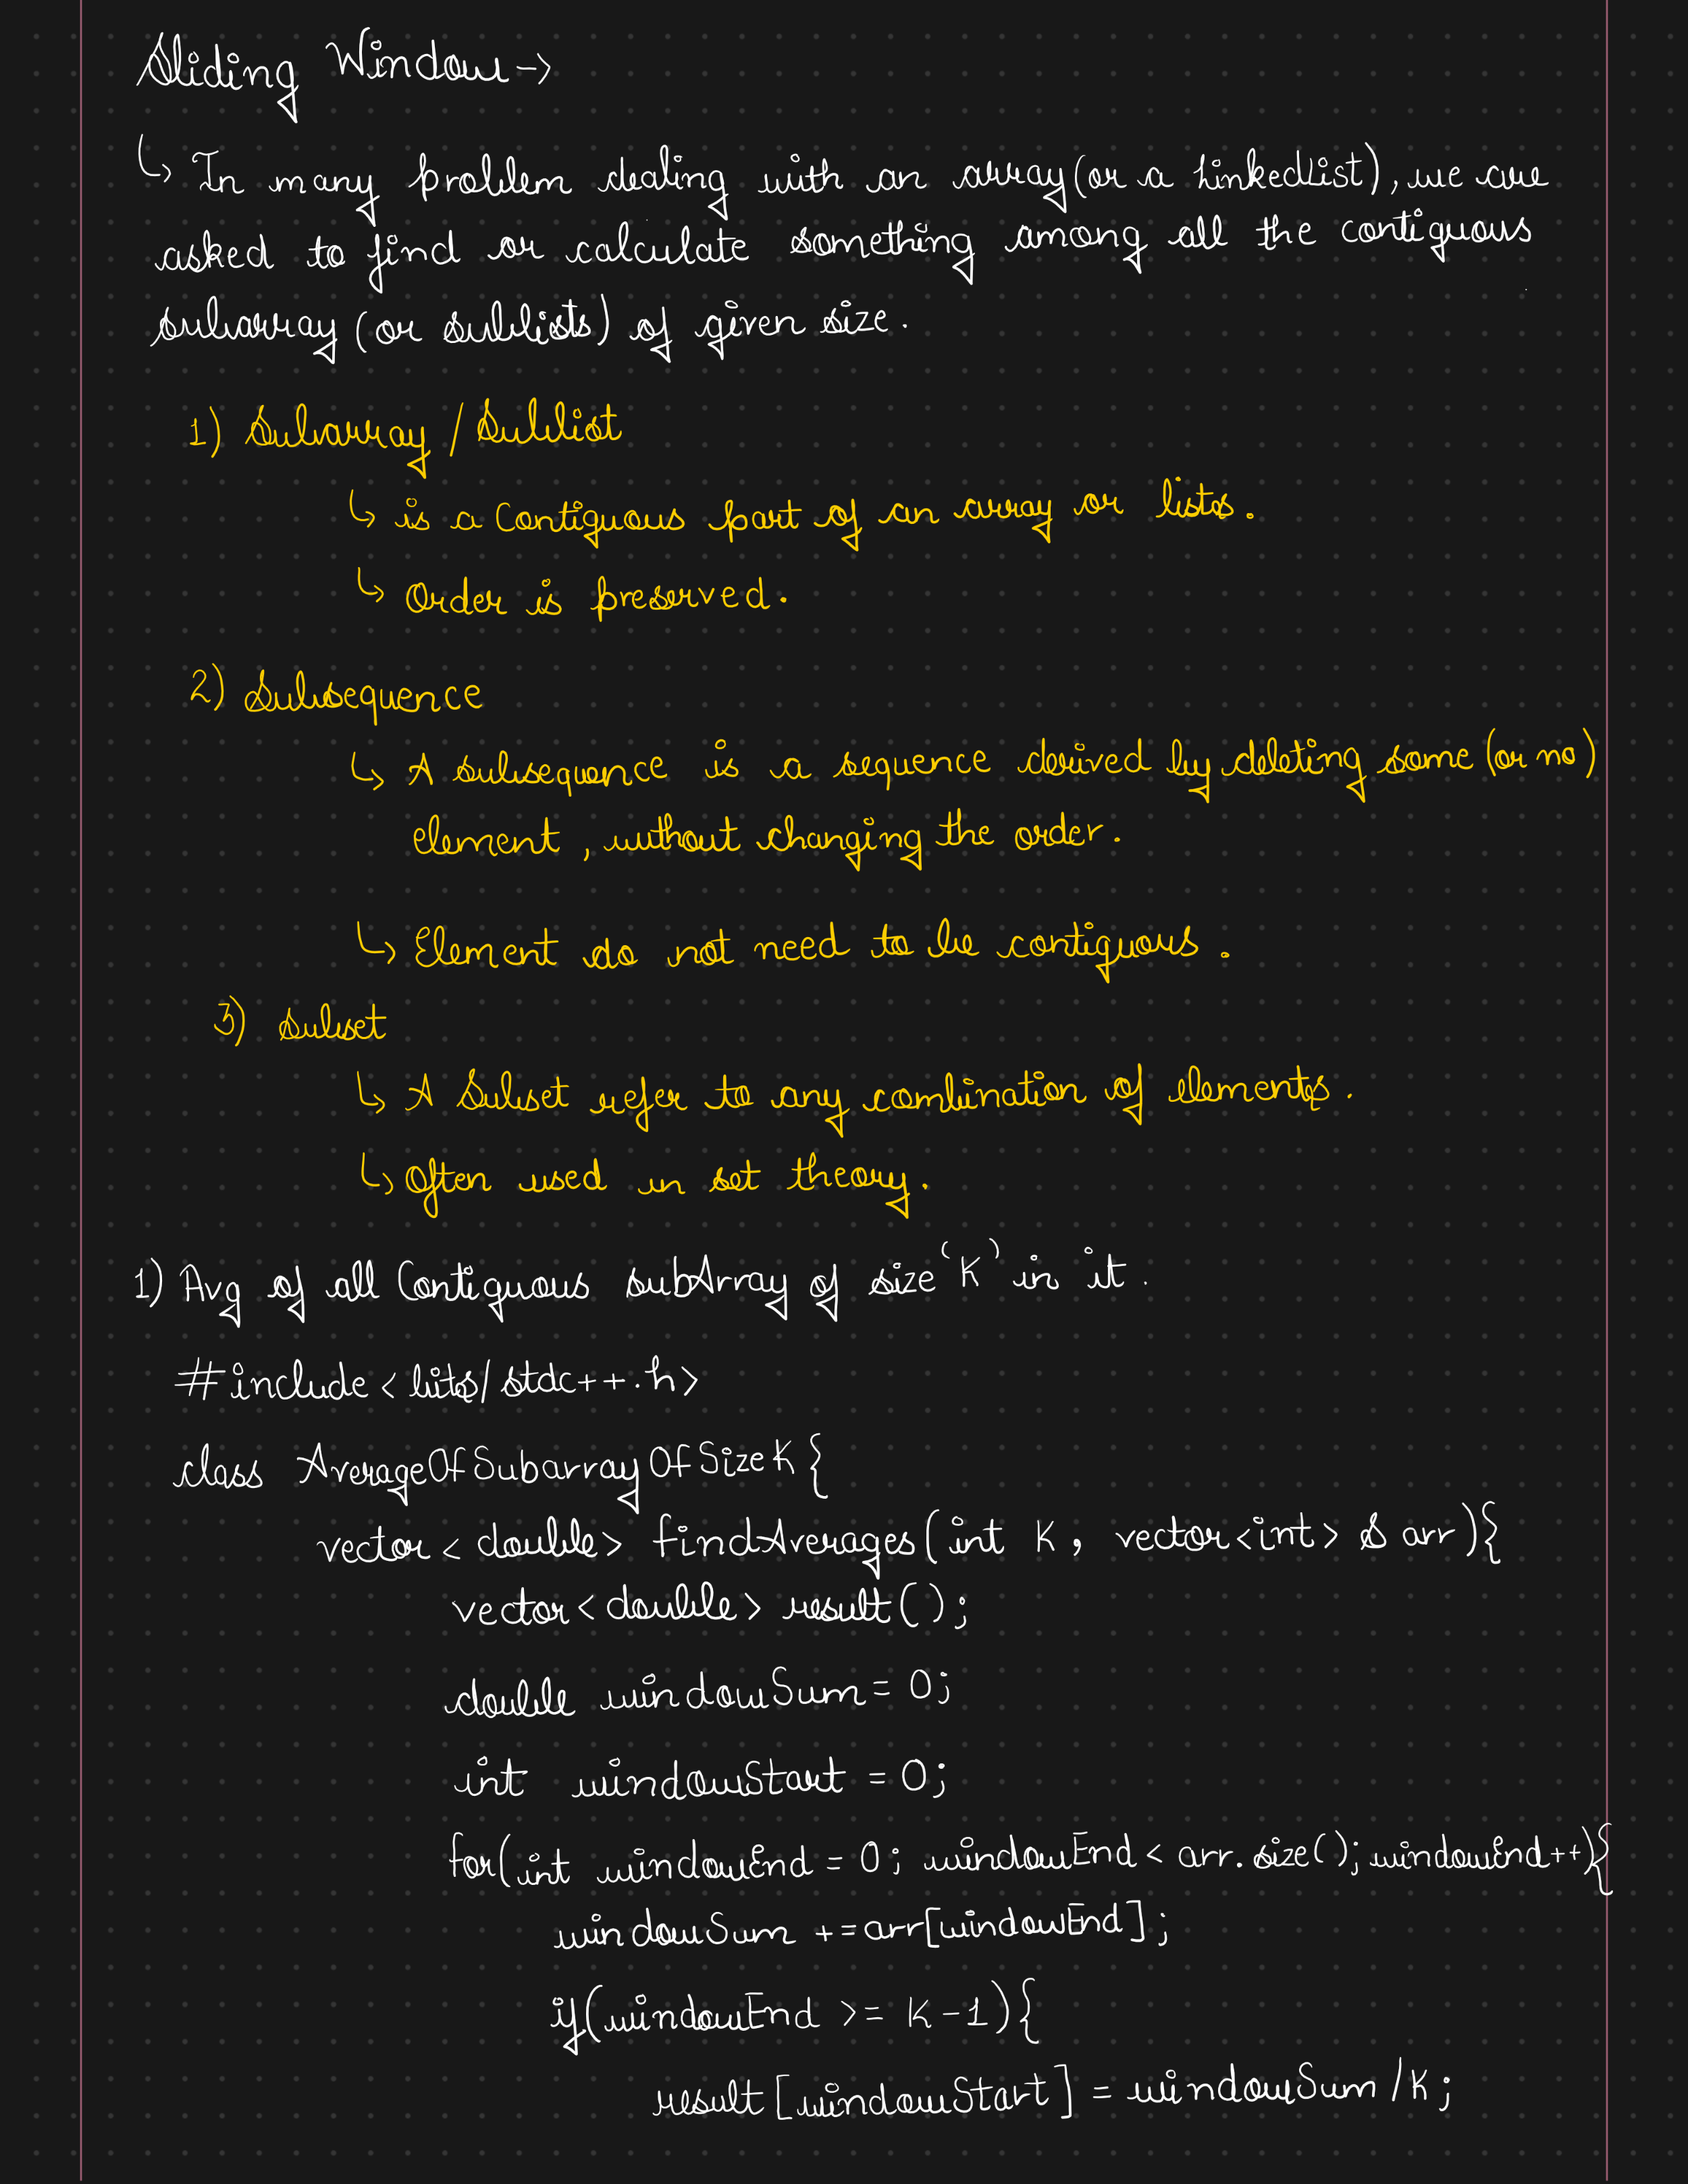 Sliding Window →
↳ In many problem dealing with an array (or a LinkedList), we are
asked to find or calculate something among all the contiguous
subarray (or sublists) of given size.
1) Subarray / Sublist
↳ is a Contiguous part of an array or lists.
↳ Order is preserved.
2) Subsequence
↳ A subsequence is a sequence derived by deleting some (or no)
element, without changing the order.
↳ Element do not need to be contiguous.
3) Subset
↳ A Subset refer to any combination of elements.
↳ Often used in set theory.
1) Avg of all Contiguous subArray of size 'K' in it.
#include <bits/stdc++.h>
class AverageOfSubarrayOfSizeK {
vector<double> findAverages(int K, vector<int> & arr){
vector<double> result();
double windowSum = 0;
int windowStart = 0;
for(int windowEnd = 0; windowEnd < arr.size(); windowEnd++){
windowSum += arr[windowEnd];
if(windowEnd >= K-1){
result[windowStart] = windowSum/K;